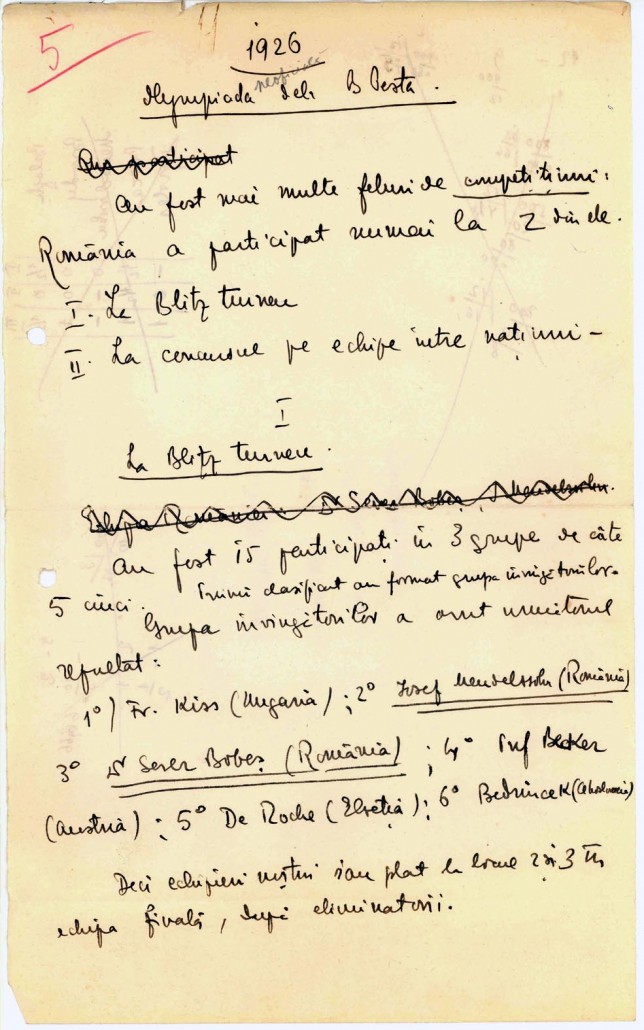 5
1926
neoficială
Olympiada dela B Pesta.
Au participat
Au fost mai multe feluri de competițiuni:
România a participat numai la 2 din ele.
I. La Blitz turneu
II. La concursul pe echipe între națiuni –
I
La Blitz turneu.
Echipa României: Dr Sever Bobeș, J. Mendelssohn.
Au fost 15 participați în 3 grupe de câte
5 cinci. Primii clasificat au format grupa învingătorilor.
Grupa învingătorilor a avut următorul
rezultat:
1º) Fr. Kiss (Ungaria); 2º Iosef Mendelssohn (România)
3º Dr Sever Bobeș (România); 4º Prof Becker
(Austria); 5º De Roche (Elveția); 6º Bednincek
Deci echipieri noștri s'au plat la locul 2 și 3 în
echipa finală, după eliminatorii.